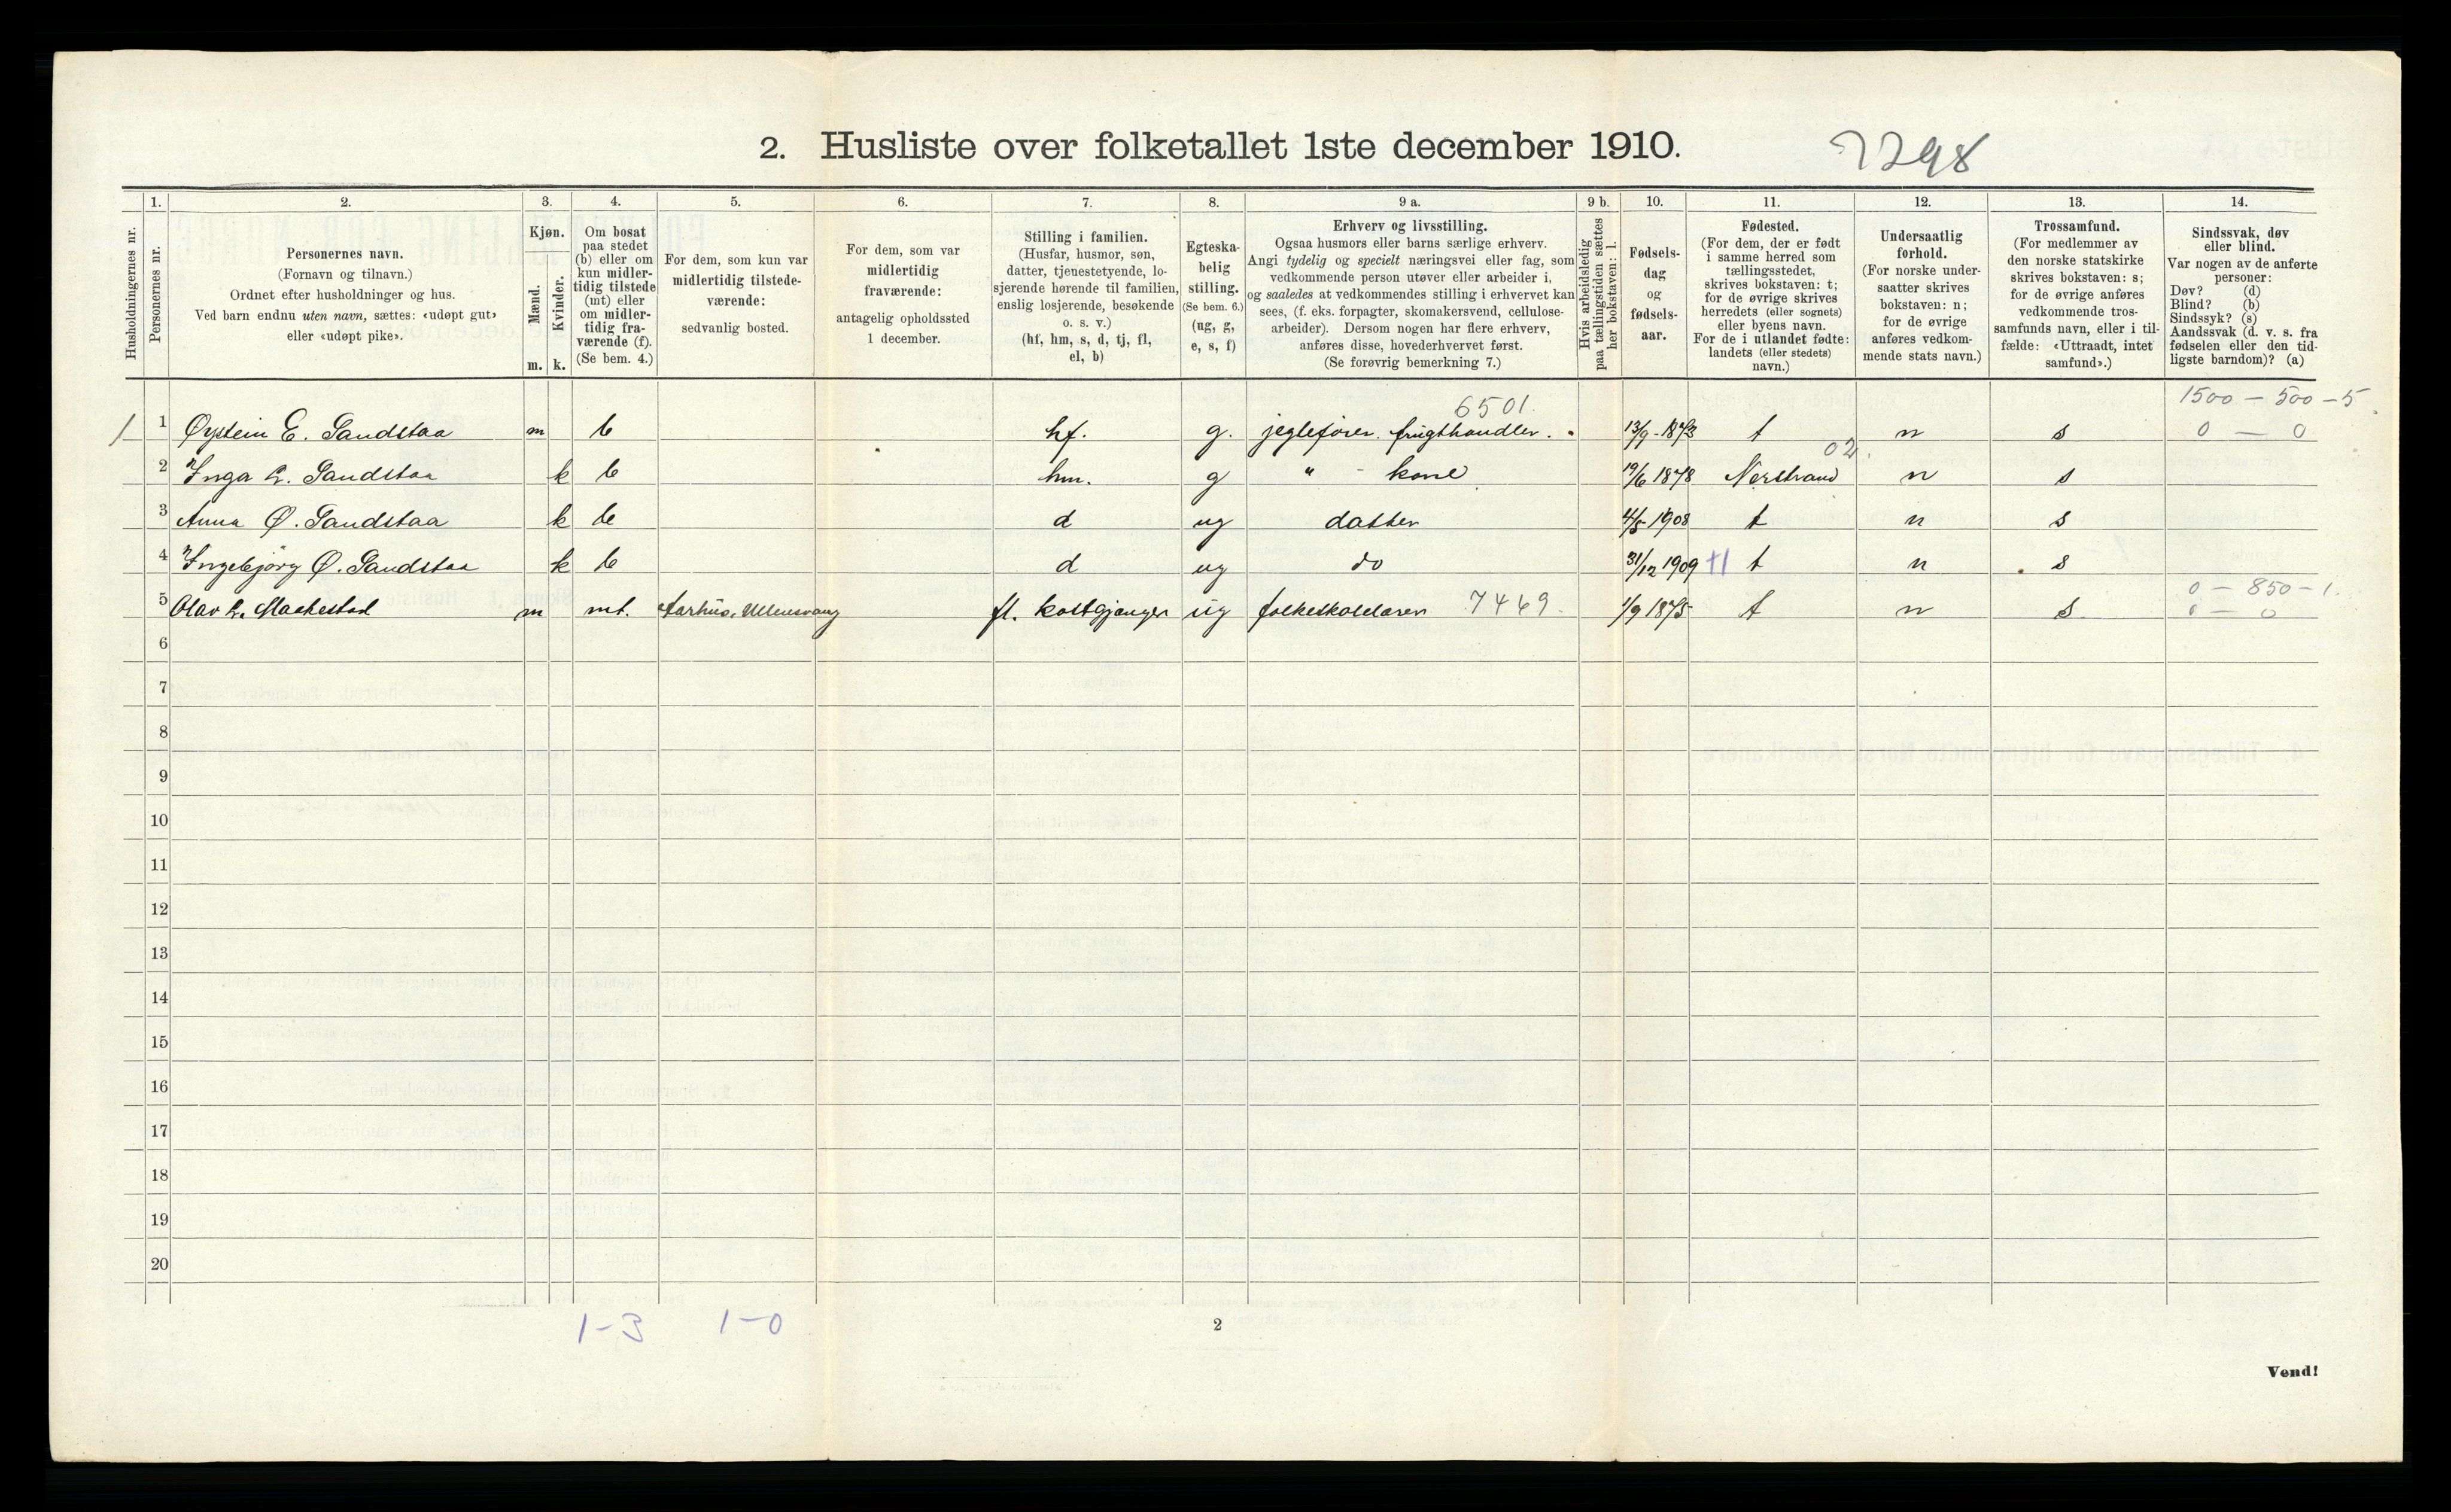 2. Husliste over folketallet 1ste december 1910.
7298
Husholdningernes nr.
1.
Personernes nr.
2.
Personernes navn.
(Fornavn og tilnavn.)
Ordnet efter husholdninger og hus.
Ved barn endnu uten navn, sættes: «udøpt gut»
eller «udøpt pike».
3.
Kjøn.
Mænd.
Kvinder.
m. k.
4.
Om bosat
paa stedet
(b) eller om
kun midler-
tidig tilstede
(mt) eller
om midler-
tidig fra-
værende (f).
(Se bem. 4.)
5.
For dem, som kun var
midlertidig tilstede-
værende:
sedvanlig bosted.
6.
For dem, som var
midlertidig
fraværende:
antagelig opholdssted
1 december.
7.
Stilling i familien.
(Husfar, husmor, søn,
datter, tjenestetyende, lo-
sjerende hørende til familien,
enslig losjerende, besøkende
o. s. v.)
(hf, hm, s, d, tj, fl,
el, b)
8.
Egteska-
belig
stilling.
(Se bem. 6.)
(ug, g,
e, s, f)
9 a.
Erhverv og livsstilling.
Ogsaa husmors eller barns særlige erhverv.
Angi tydelig og specielt næringsvei eller fag, som
vedkommende person utøver eller arbeider i,
og saaledes at vedkommendes stilling i erhvervet kan
sees, (f. eks. forpagter, skomakersvend, cellulose-
arbeider). Dersom nogen har flere erhverv,
anføres disse, hovederhvervet først.
(Se forøvrig bemerkning 7.)
9 b.
Hvis arbeidsledig
paa tællingstiden sættes
her bokstaven: l.
10.
Fødsels-
dag
og
fødsels-
aar.
11.
Fødested.
(For dem, der er født
i samme herred som
tællingsstedet,
skrives bokstaven: t;
for de øvrige skrives
herredets (eller sognets)
eller byens navn.
For de i utlandet fødte:
landets (eller stedets)
navn.)
12.
Undersaatlig
forhold.
(For norske under-
saatter skrives
bokstaven: n;
for de øvrige
anføres vedkom-
mende stats navn.)
13.
Trossamfund.
(For medlemmer av
den norske statskirke
skrives bokstaven: s;
for de øvrige anføres
vedkommende tros-
samfunds navn, eller i til-
fælde: «Uttraadt, intet
samfund».)
14.
Sindssvak, døv
eller blind.
Var nogen av de anførte
personer:
Døv? (d)
Blind? (b)
Sindssyk? (s)
Aandssvak (d. v. s. fra
fødselen eller den tid-
ligste barndom)? (a)
6501. 1500 – 500 – 5
1 1 Øystein E. Sandstaa m b hf. g. jegtefører. frugthandler. 13/9-1873 t n s 0 – 0
02.
2 Inga L. Sandstaa k b hm. g " - kone 19/6 1878 Nerstrand n s
3 Anna Ø. Sandstaa k b d ug datter 4/5-1908 t n s
4 Ingebjörg Ø. Sandstaa k b d ug do 31/12 1909 t n s
0 – 850 – 1.
5 Olav L. Maakestad m mt. Aarhus, Ullensvang fl. kostgjænger ug folkeskolelærer 7469. 1/9 1875 t n s 0 – 0
6
7
8
9
10
11
12
13
14
15
16
17
18
19
20
1-3 1-0
2
Vend!